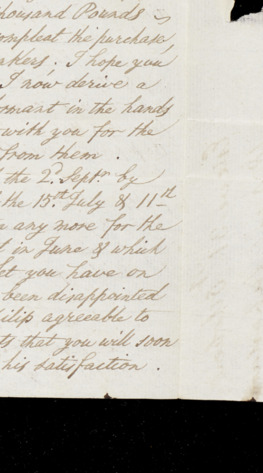 thousand Pounds
compleat the purchase,
akers. I hope you
I now derive a
ormant in the hands
with you for the
from them.
the 2d. Septr. by
the 15th. July & 11th
any more for the
t in June & which
ct you have on
been disappointed
ilip agreeable to
ts that you will soon
his satisfaction.